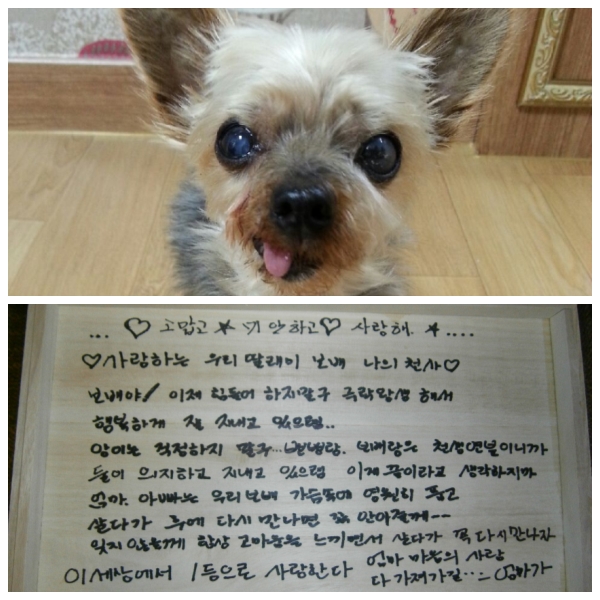 ... ♡ 고맙고 ★ 미안하고 ♡ 사랑해. ★ ....
♡사랑하는 우리 딸래미 보배 나의 천사♡
보배야! 이제 힘들어 하지말구 극락왕생 해서
행복하게 잘 지내고 있으렴..
걱정하지 말구... 보배랑은 천생연분이니까
둘이 의지하고 지내고 있으렴 이제 끝이라고 생각하지마
엄마. 아빠는 우리보배 가슴속에 영원히 품고
살다가 후에 다시 만나면 꼭 안아줄께~~
잊지 않을께 항상 고마움을 느끼면서 살다가 꼭 다시만나자
이 세상에서 1등으로 사랑한다 엄마 마음의 사랑
다 가져가길... 엄마가